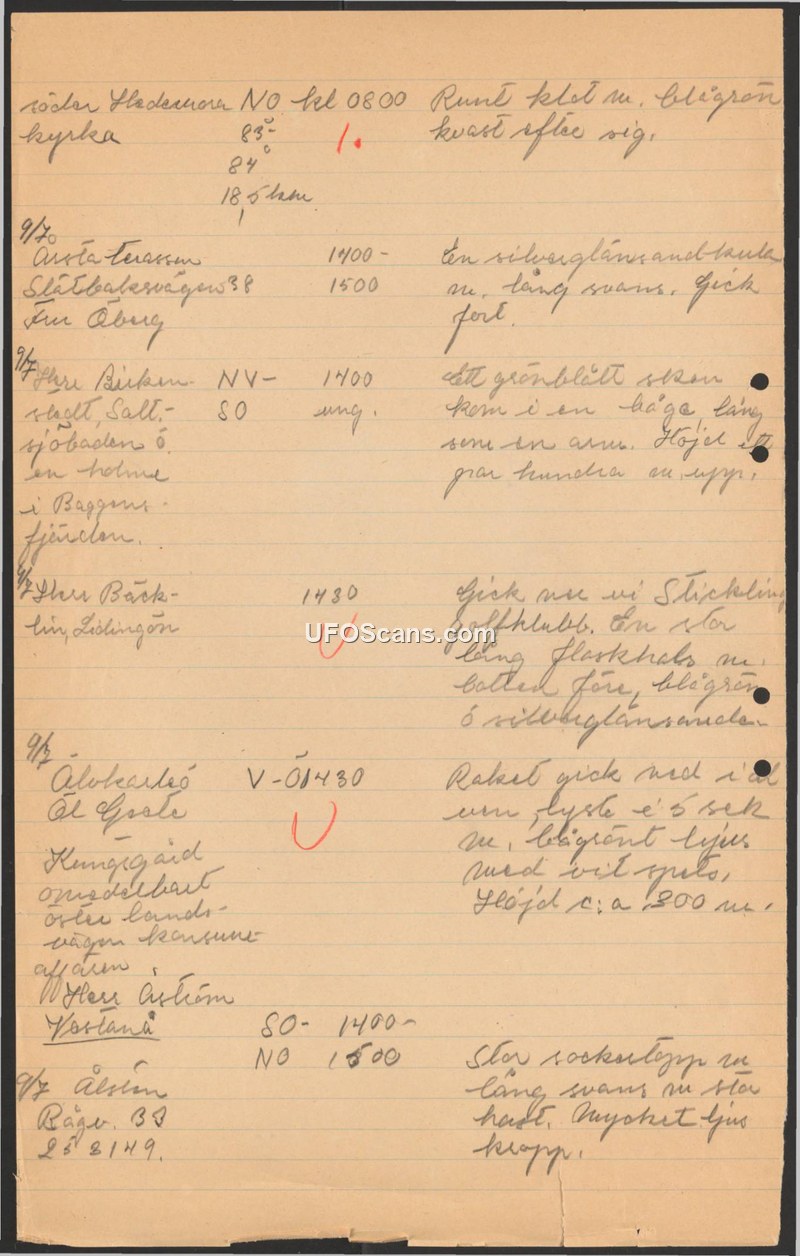 söder Hedemora NO kl 0800 Runt klot m. blågrön
kyrka 83° 1. kvast efter sig.
84°
18,5 km
9/7
Årsta terassen 1400- En silverglänsand kula
Slätbaksvägen 38 1500 m. lång svans. Gick
Fru Öberg fort.
9/7 Herr Birken- NV- 1400 Ett grönblått sken
stedt, Salt- SO ung. kom i en båge, lång
sjöbaden å som en arm. Höjd ett
en holme par hundra m. upp.
i Baggens-
fjärden.
9/7 Herr Bäck- 1430 Gick ner vi Stickling
lin, Lidingön golfklubb. En stor
UFOScans.com
lång flaskhals m.
botten före, blågrön
o silverglänsande.
9/7
Älvkarleö V-Ö 1430 Raket gick ned i äl
ven, lyste i 5 sek
m. blågrönt ljus
Kungsgård med vit spets,
omedelbart Höjd c:a 300 m.
öster lands-
vägen konsum-
affären.
Herr Åström
Västanå SO- 1400-
NO 1500 Stor sockertopp m
9/7 Ålsten lång svans m stor
Rågv. 33 hast. Mycket ljus
25 3149. kropp.